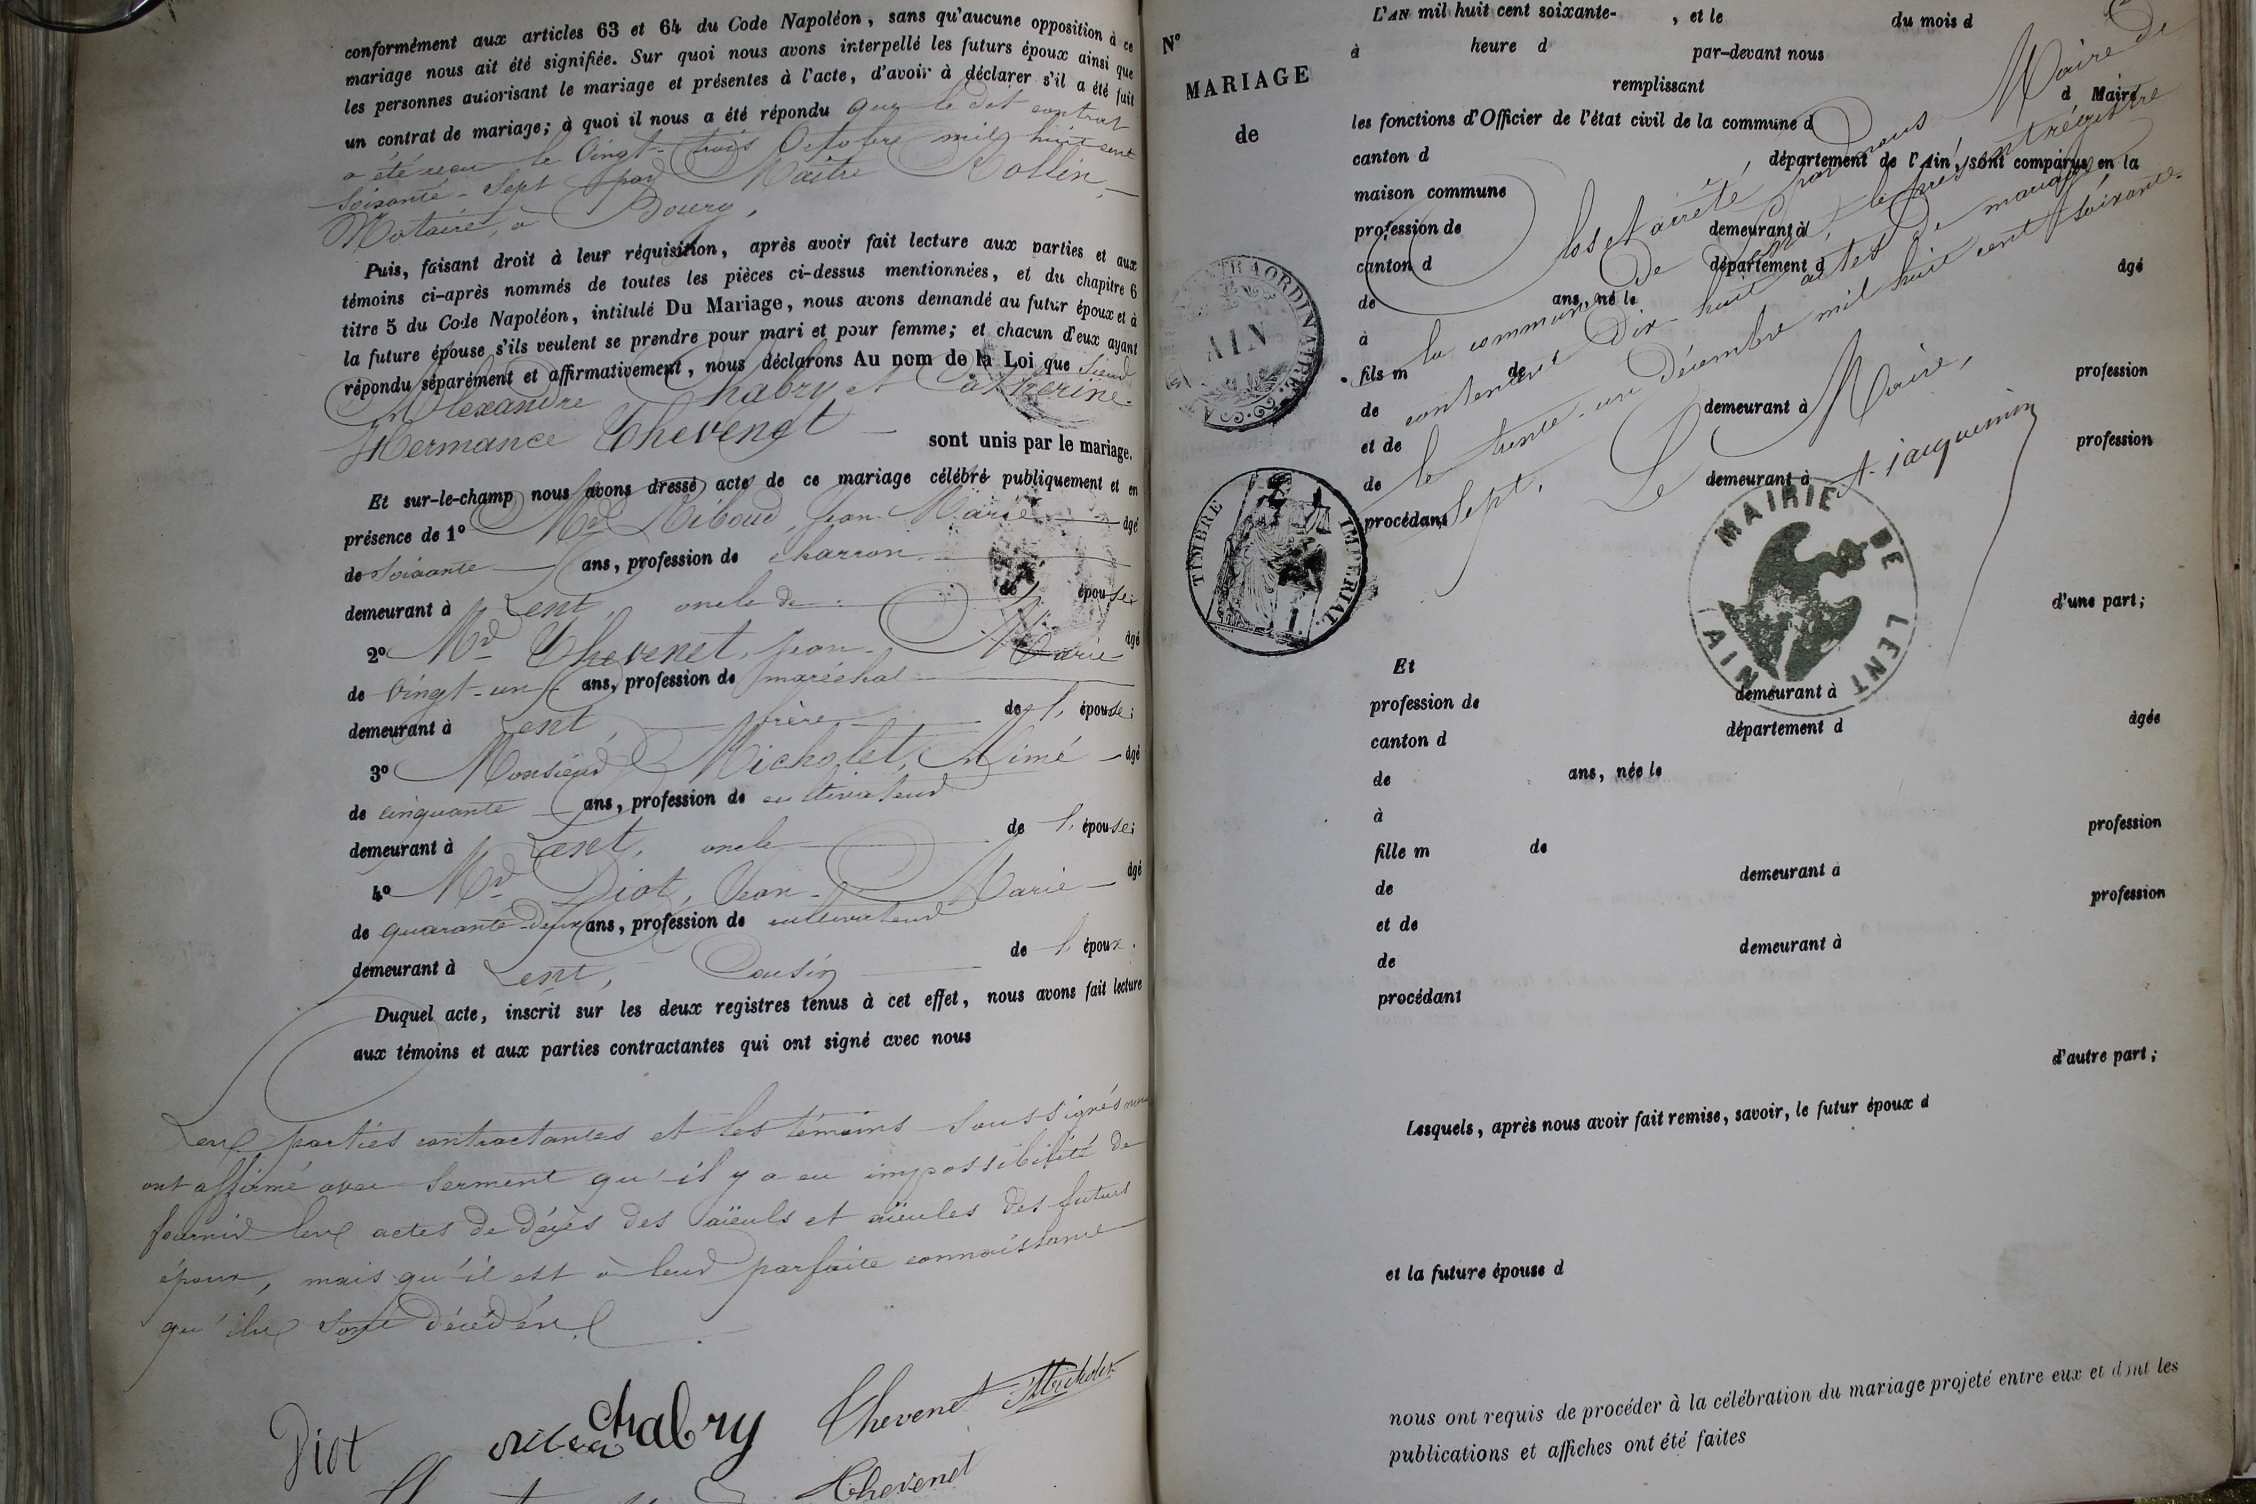 conformément aux articles 63 et 64 du Code Napoléon, sans qu'aucune opposition à ce
mariage nous ait été signifiée. Sur quoi nous avons interpellé les futurs époux ainsi que
les personnes autorisant le mariage et présentes à l'acte, d'avoir à déclarer s'il a été fait
un contrat de mariage; à quoi il nous a été répondu que le dit contrat
a été reçu le Vingt-trois Octobre mil huit cent
soixante-Sept par Maître Rollin,
Notaire, à Bourg.
Puis, faisant droit à leur réquisition, après avoir fait lecture aux parties et aux
témoins ci-après nommés de toutes les pièces ci-dessus mentionnées, et du chapitre 6
titre 5 du Code Napoléon, intitulé Du Mariage, nous avons demandé au futur époux et à
la future épouse s'ils veulent se prendre pour mari et pour femme; et chacun d'eux ayant
répondu séparément et affirmativement, nous déclarons Au nom de la Loi que Sieur
Alexandre Chabry et Catherine
Hermance Thevenet sont unis par le mariage.
Et sur-le-champ nous avons dressé acte de ce mariage célébré publiquement et en
présence de 1º Mr Riboud, Jean-Marie âgé
de soixante ans, profession de charron
demeurant à Lent, oncle de épouse;
2º Mr Thevenet, Jean-Marie âgé
de vingt-un ans, profession de maréchal
demeurant à Lent, frère de l'épouse;
3º Monsieur Micholet, Aimé âgé
de cinquante ans, profession de cultivateur
demeurant à Lent, oncle de l'épouse;
4º Mr Diot, Jean-Marie âgé
de quarante-deux ans, profession de cultivateur
demeurant à Lent, Cousin de l'époux.
Duquel acte, inscrit sur les deux registres tenus à cet effet, nous avons fait lecture
aux témoins et aux parties contractantes qui ont signé avec nous
Les parties contractantes et les témoins soussignés nous
ont affirmé avec serment qu'il y a eu impossibilité de
fournir les actes de décès des aïeuls et aïeules des futurs
époux, mais qu'il est à leur parfaite connaissance
qu'ils sont décédés.
Diot Chabry Thevenet Micholet
Thevenet
Nº
MARIAGE
de
EXTRAORDINAIRE
AIN
TIMBRE IMPERIAL
L'AN mil huit cent soixante- , et le du mois d
à heure d par-devant nous
remplissant
les fonctions d'Officier de l'état civil de la commune d d Maire
canton d département de l'Ain, sont comparus en la
maison commune
profession de demeurant à
canton d département d
de ans, né le âgé
à
fils m de
de demeurant à profession
et de
de demeurant à profession
procédant
Clos et arrêté par nous Maire de
la commune de Lent, le présent régistre
contenant Dix-huit actes de mariage
le trente-un décembre mil huit cent soixante-
Sept.
Le Maire,
A. jacquemin
MAIRIE DE LENT
(AIN)
d'une part;
Et
profession de demeurant à
canton d département d
de ans, née le âgée
à
fille m de
de demeurant à profession
et de
de demeurant à profession
procédant
d'autre part;
Lesquels, après nous avoir fait remise, savoir, le futur époux d
et la future épouse d
nous ont requis de procéder à la célébration du mariage projeté entre eux et dont les
publications et affiches ont été faites